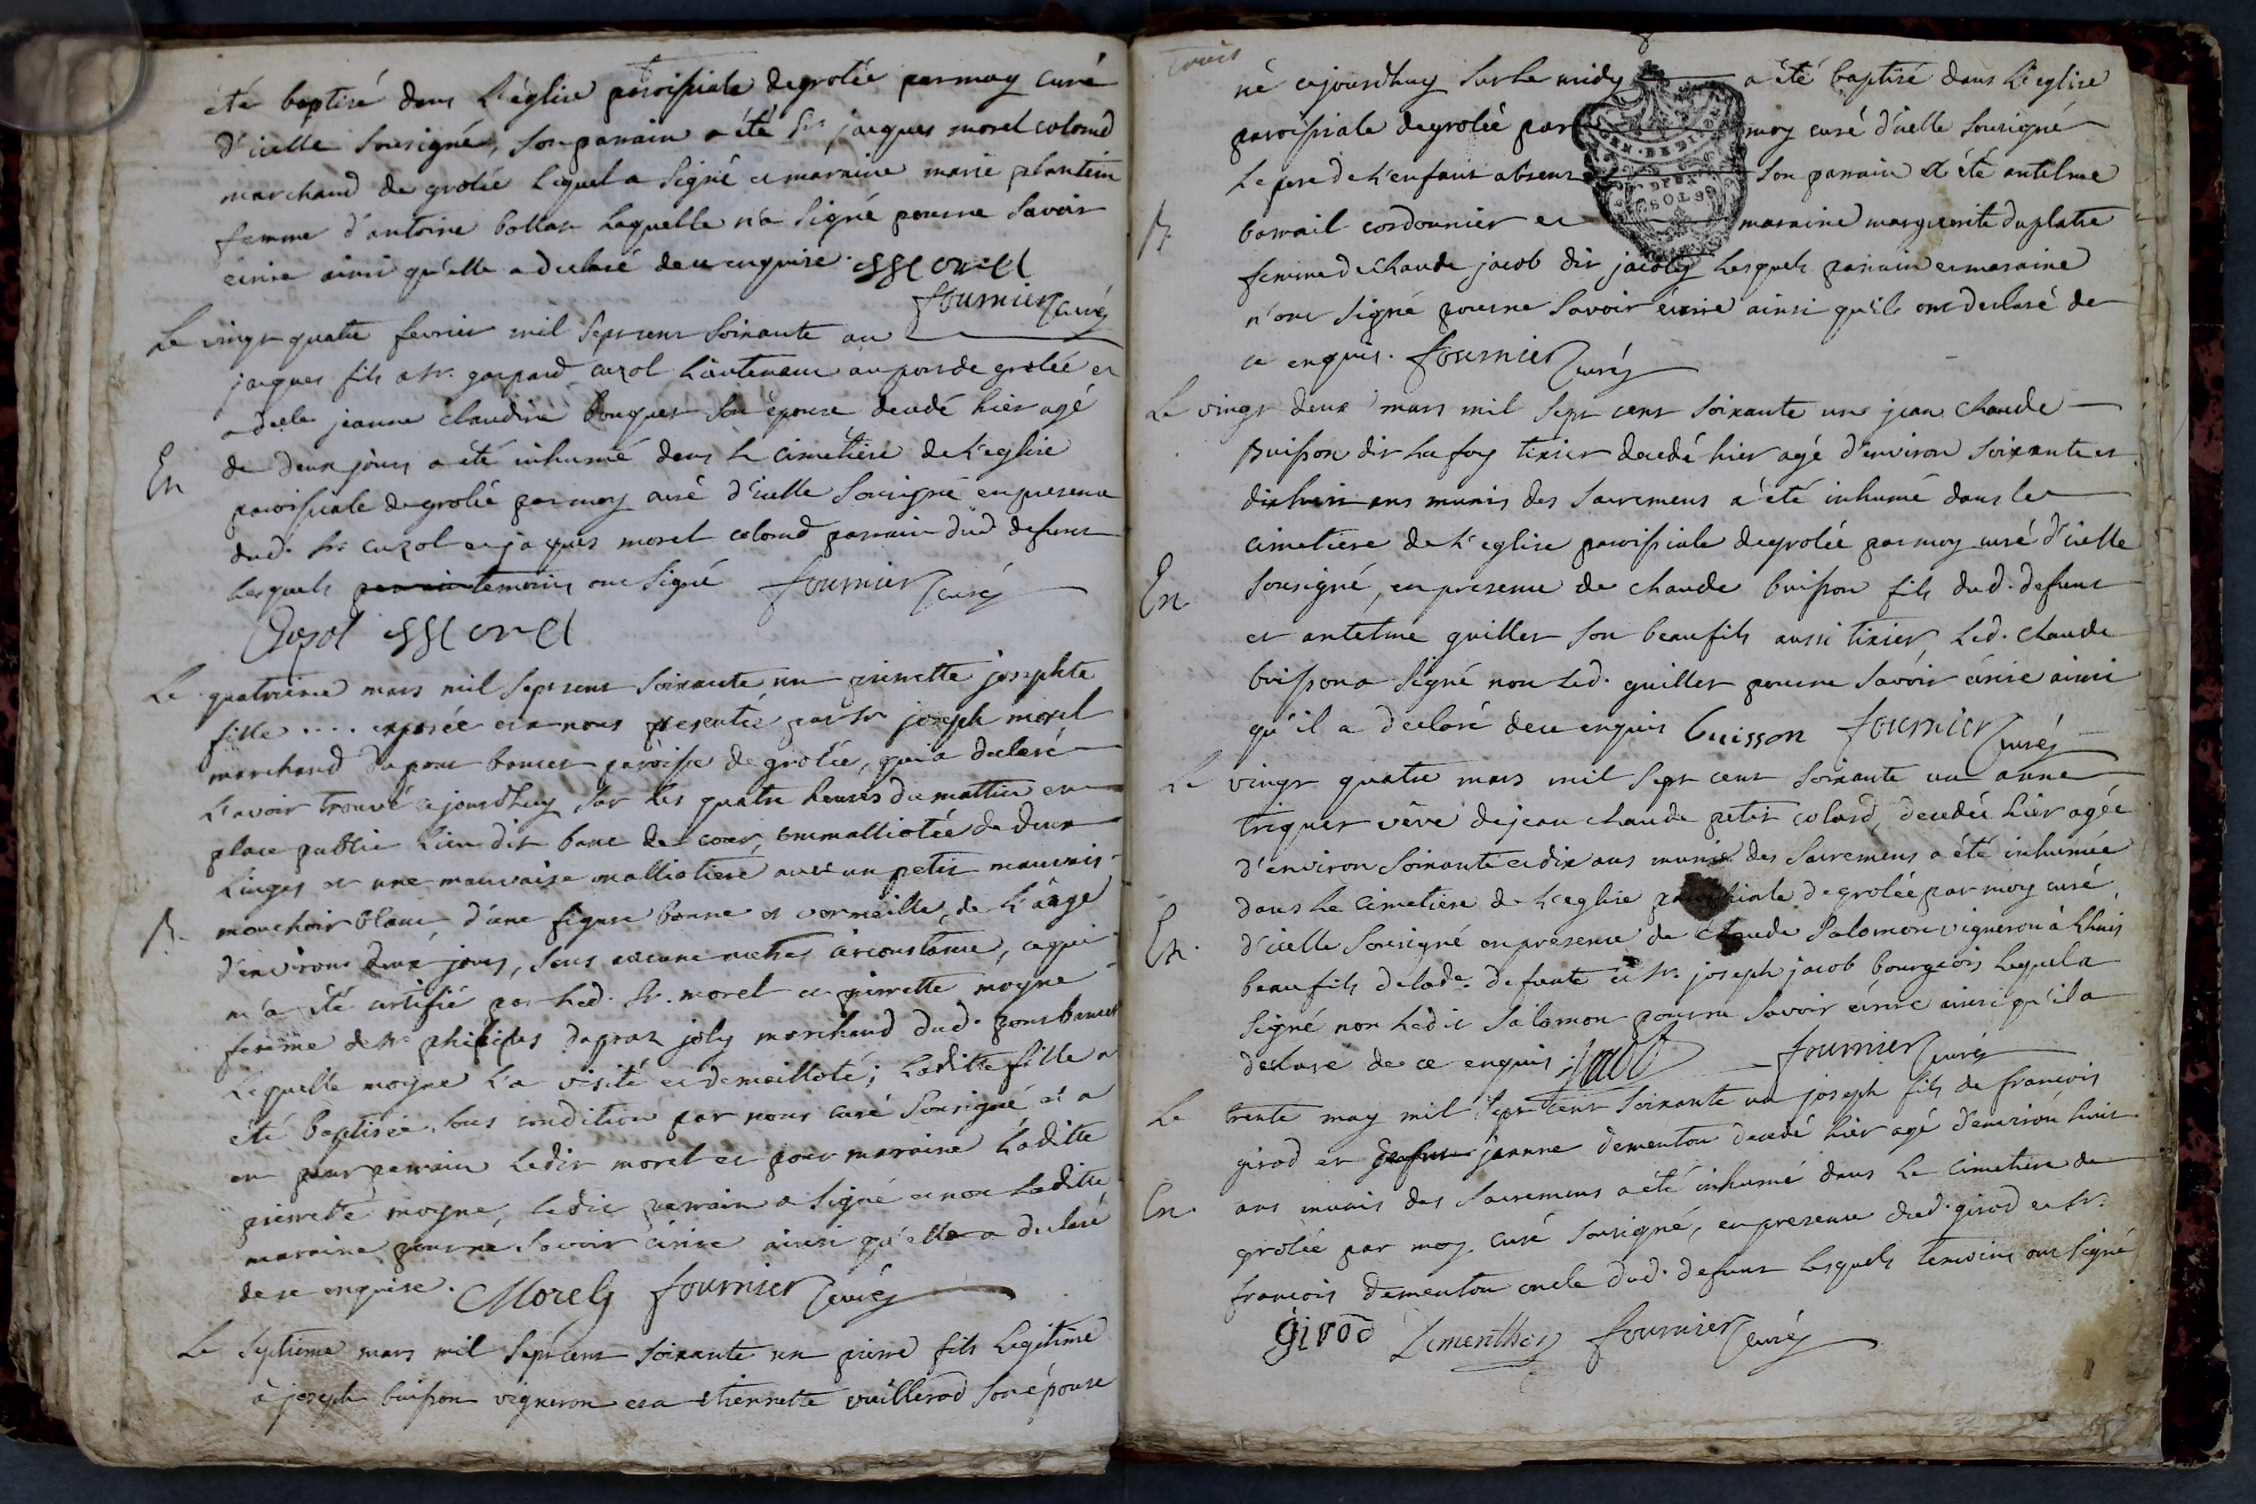 été baptisé dans L'église paroissiale degrolée par moy curé
d'icelle sousigné, son parrain a été Sr. jacques morel colomd
marchand de grolée Lequel a signé et maraine marie plantein
femme d'antoine Laquelle n'a signé pour ne savoir
écrire ainsi qu'elle a declaré de ce enquise. Morel
fournier curé
Le vingt quatre fevrier mil sept cent soixante un
jacques fils a sr. gaspard cuzol Lieutenant au port de grolée et
a delle jeanne claudine bouquet son épouse decedé hier agé
de deux jours a été inhumé dans le cimetiere de L'eglise
En
paroissiale de grolée par moy curé d'icelle sousigné en presence
dud. sr. cuzol et jaques morel colomd parrain dud defunt
lesquels temoins ont signé fournier curé
Cuzol Morel
Le quatrieme mars mil sept cent soixante un pierrette josephte
fille .... exposée et a nous presentée par sr joseph morel
marchand du pont bancet paroisse de grolée, qui a declaré
L'avoir trouvé cejourdhuy sur les quatre heures du mattin en
place public Lieu dit banc de cour, emmalliotée de deux
Linges et une mauvaise malliotiere avec un petit mauvais
B.
mouchoir blanc, d'une figure bonne et vermeille, de L'âage
d'environ deux jours, sans aucune autres circonstance, ce qui
m'a été certifié par Led. sr. morel et pierrette moyne
femme de sr philipes dupraz joly marchand dud. pont bancet
Lequelle moyne L'a visité et demaillotée; Laditte fille a
été baptisée sous condition par nous curé sousigné et a
eu pour parrain Ledit morel et pour maraine Laditte
pierrette moyne, Ledit parrain a signé et non Laditte
maraine pour ne savoir écrire ainsi qu'elle a declaré
de ce enquise. Morel fournier curé
Le septieme mars mil sept cent soixante un pierre fils Legitime
à joseph buisson vigneron et a etiennette vuillerod son épouse
trois
né cejourdhuy sur Le midy a été baptisé dans L'eglise
paroissiale de grolée par moy curé d'icelle sousigné
Le pere de L'enfant absent son parrain a été antelme
B.
barrail cordonnier et maraine marguerite duplatre
femme de claude jacob dit jacoley Lesquels parrain et maraine
n'ont signé pour ne savoir écrire ainsi qu'ils ont declaré de
ce enquis. fournier curé
Le vingt deux mars mil sept cent soixante un jean claude
buisson dit Lafoy tixier decedé hier agé d'environ soixante et
dixhuit ans munis des sacremens a été inhumé dans le
cimetiere de L'eglise paroissiale degrolée par moy curé d'icelle
En
sousigné, en presence de claude buisson fils dud. defunt
et antelme guillet son beaufils aussi tixier, Led. claude
buisson a signé non Led. guillet pour ne savoir écrire ainsi
qu'il a declaré de ce enquis buisson fournier curé
Le vingt quatre mars mil sept cent soixante un anne
triquet vêve de jean claude petit colard, decedée hier agée
d'environ soixante et dix ans munie des sacremens a été inhumée
dans Le cimetiere de L'eglise paroissiale de grolée par moy curé
En.
d'icelle sousigné en presence de claude Salomon vigneron à Lhuis
beaufils de lade. defunte et sr. joseph jacob bourgeois Lequel a
signé non Ledit Salomon pour ne savoir écrire ainsi qu'il a
declaré de ce enquis: jacob fournier curé
Le trente may mil sept cent soixante un joseph fils de françois
girod et jeanne dementon decedé hier agé d'environ huit
En.
ans munis des sacremens a été inhumé dans Le cimetiere de
grolée par moy curé sousigné, en presence dud. girod et sr.
françois dementon oncle dud. defunt Lesquels temoins ont signé
girod Dementhon fournier curé